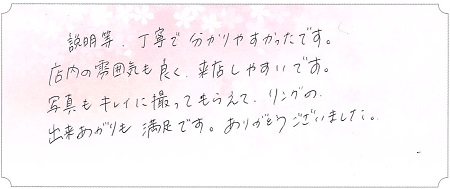 説明等、丁寧で分かりやすかったです。
店内の雰囲気も良く、来店しやすいです。
写真もキレイに撮ってもらえて、リングの
出来あがりも満足です。ありがとうございました。